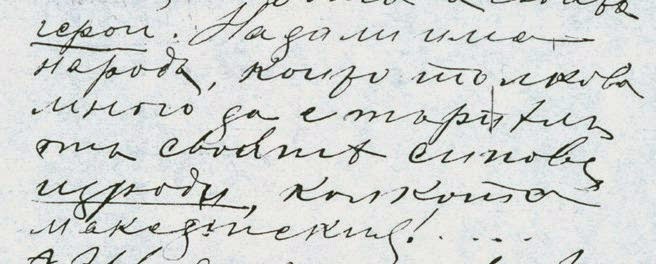 герои. Надали има
народъ, който толкова
много да е търпѣлъ
отъ своитѣ синове
изроди, колкото
македонский!....